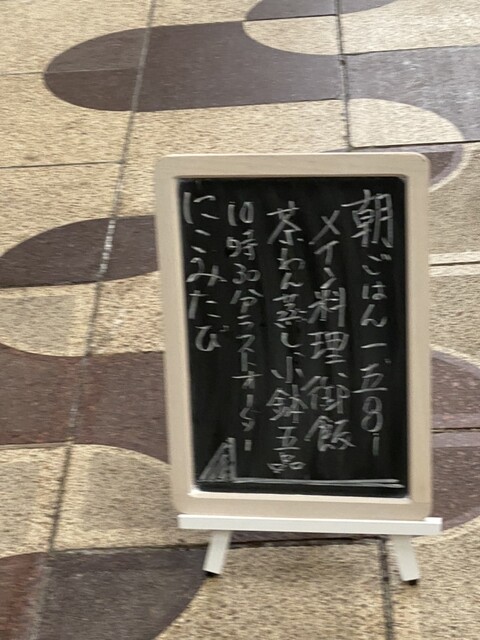 朝ごはん一五〇〇ー
メイン料理、御飯
茶わん蒸し、小鉢五品
10時30分ラストオーダー
にこみたび